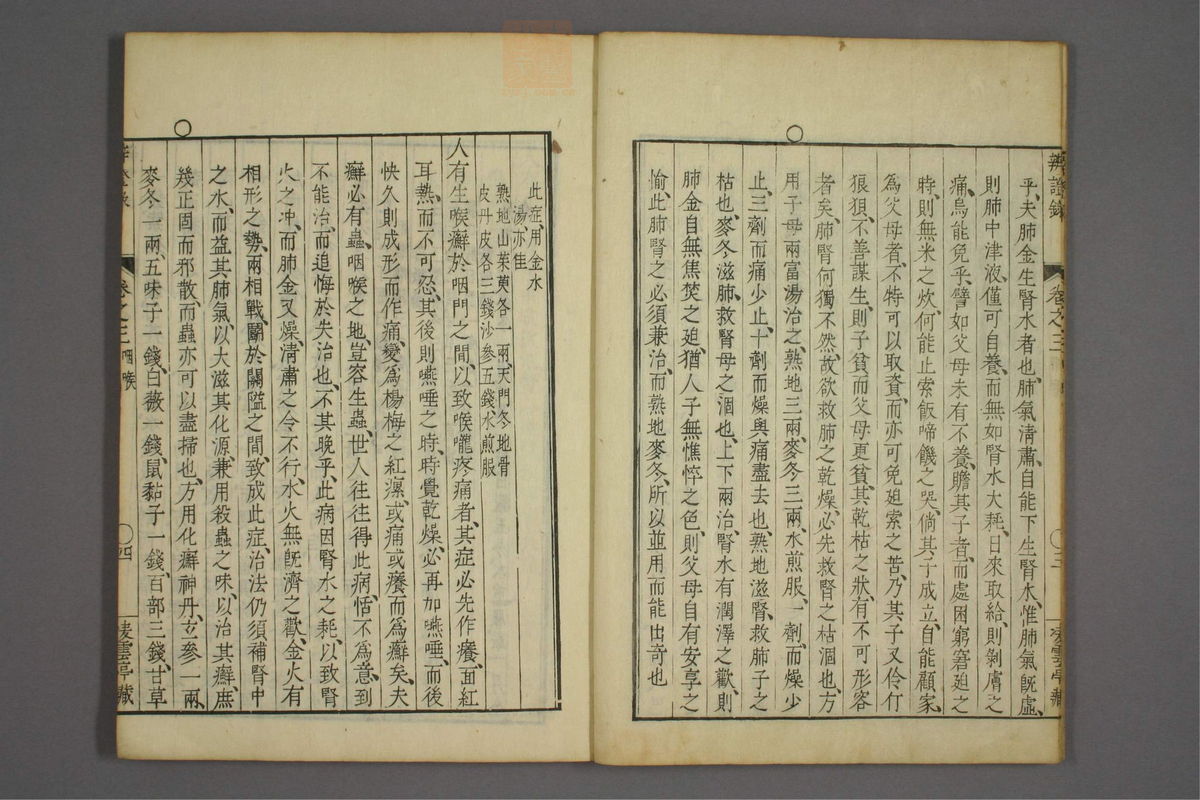 辨證錄 卷之三
乎、夫肺金生腎水者也、肺氣清肅、自能下生腎水、惟肺氣旣虛、
則肺中津液、僅可自養、而無如腎水大耗、日來取給、則剝膚之
痛、烏能免乎、譬如父母未有不養贍其子者、而處困窮窘廹之
時、則無米之炊、何能止索飯啼饑之哭、倘其子成立、自能顧家、
爲父母者、不特可以取資、而亦可免廹索之苦、乃其子又伶仃
狼狽、不善謀生、則子貧而父母更貧、其乾枯之狀、有不可形容
者矣、肺腎何獨不然、故欲救肺之乾燥、必先救腎之枯涸也、方
用子母兩富湯治之、熟地三兩、麥冬三兩、水煎服、一劑、而燥少
止、三劑而痛少止、十劑而燥與痛盡去也、熟地滋腎、救肺子之
枯也、麥冬滋肺、救腎母之涸也、上下兩治、腎水有潤澤之歡、則
肺金自無焦焚之廹、猶人子無憔悴之色、則父母自有安享之
愉、此肺腎之必須兼治、而熟地麥冬、所以並用而能出奇也
此症、用金水
湯亦佳
熟地山茱萸各一兩、天門冬地骨
皮丹皮各三錢沙參五錢、水煎服
人有生喉癬於咽門之間、以致喉嚨疼痛者、其症必先作癢、面紅
耳熱、而不可忍、其後則嚥唾之時、時覺乾燥、必再加嚥唾、而後
快久則成形而作痛變爲楊梅之紅瘰、或痛或癢而爲癬矣、夫
癬必有蟲、咽喉之地、豈容生蟲、世人往往得此病、恬不爲意、到
不能治、而追悔於失治也、不其晚乎、此病因腎水之耗、以致腎
火之冲、而肺金又燥、清肅之令不行、水火無旣濟之歡、金火有
相形之勢、兩相戰鬬於關隘之間、致成此症、治法仍須補腎中
之水、而益其肺氣、以大滋其化源、兼用殺蟲之味、以治其癬、庶
幾正固而邪散、而蟲亦可以盡掃也、方用化癬神丹、玄參一兩、
麥冬一兩、五味子一錢、白薇一錢、鼠黏子一錢、百部三錢、甘草
卷之三 咽喉 四